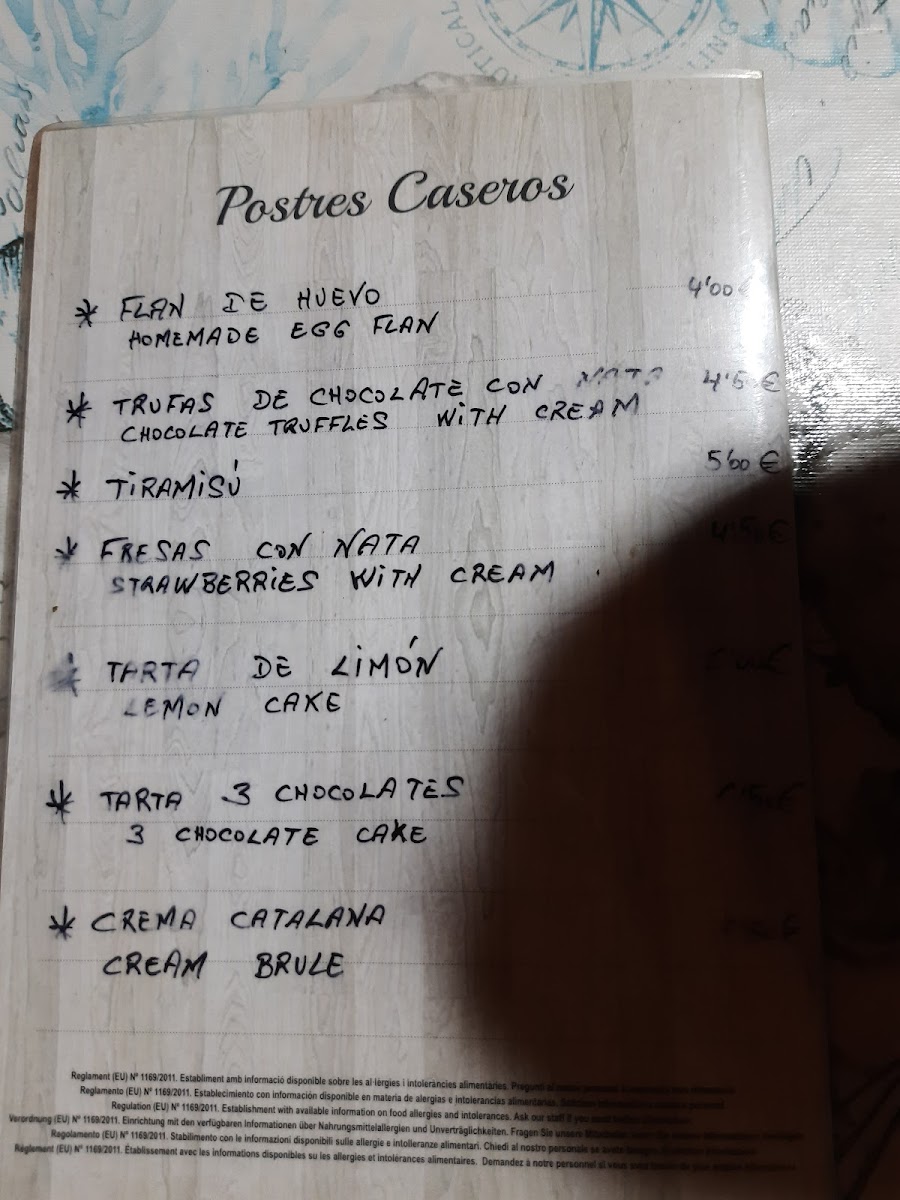 Postres Caseros
* FLAN DE HUEVO 4'00€
HOMEMADE EGG FLAN
* TRUFAS DE CHOCOLATE CON NATA 4'5 €
CHOCOLATE TRUFFLES WITH CREAM
* TIRAMISÚ 5'00 €
* FRESAS CON NATA 4'50€
STRAWBERRIES WITH CREAM
* TARTA DE LIMÓN
LEMON CAKE
* TARTA 3 CHOCOLATES
3 CHOCOLATE CAKE
* CREMA CATALANA
CREAM BRULE
Reglament (EU) Nº 1169/2011. Establiment amb informació disponible sobre les al·lèrgies i intoleràncies alimentaries.
Reglamento (EU) Nº 1169/2011. Establecimiento con información disponible en materia de alergias e intolerancias alimentarias.
Regulation (EU) Nº 1169/2011. Establishment with available information on food allergies and intolerances. Ask our staff if you
Verordnung (EU) Nº 1169/2011. Einrichtung mit den verfügbaren Informationen über Nahrungsmittelallergien und Unverträglichkeiten. Fragen Sie
Ragolamento (EU) Nº 1169/2011. Stabilimento con le informazioni disponibili sulle allergie e intolleranze alimentari. Chiedi al nostro personale
Règlement (EU) Nº 1169/2011. Établissement avec les informations disponibles su les allergies et intolérances alimentaires. Demandez à notre personnel si vous